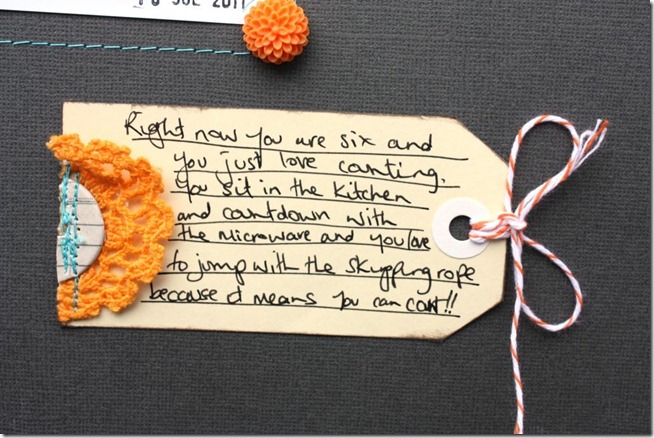 JUL 2011
Right now you are six and
you just love counting.
You sit in the kitchen
and countdown with
the microwave and you love
to jump with the skipping rope
because it means you can count!!